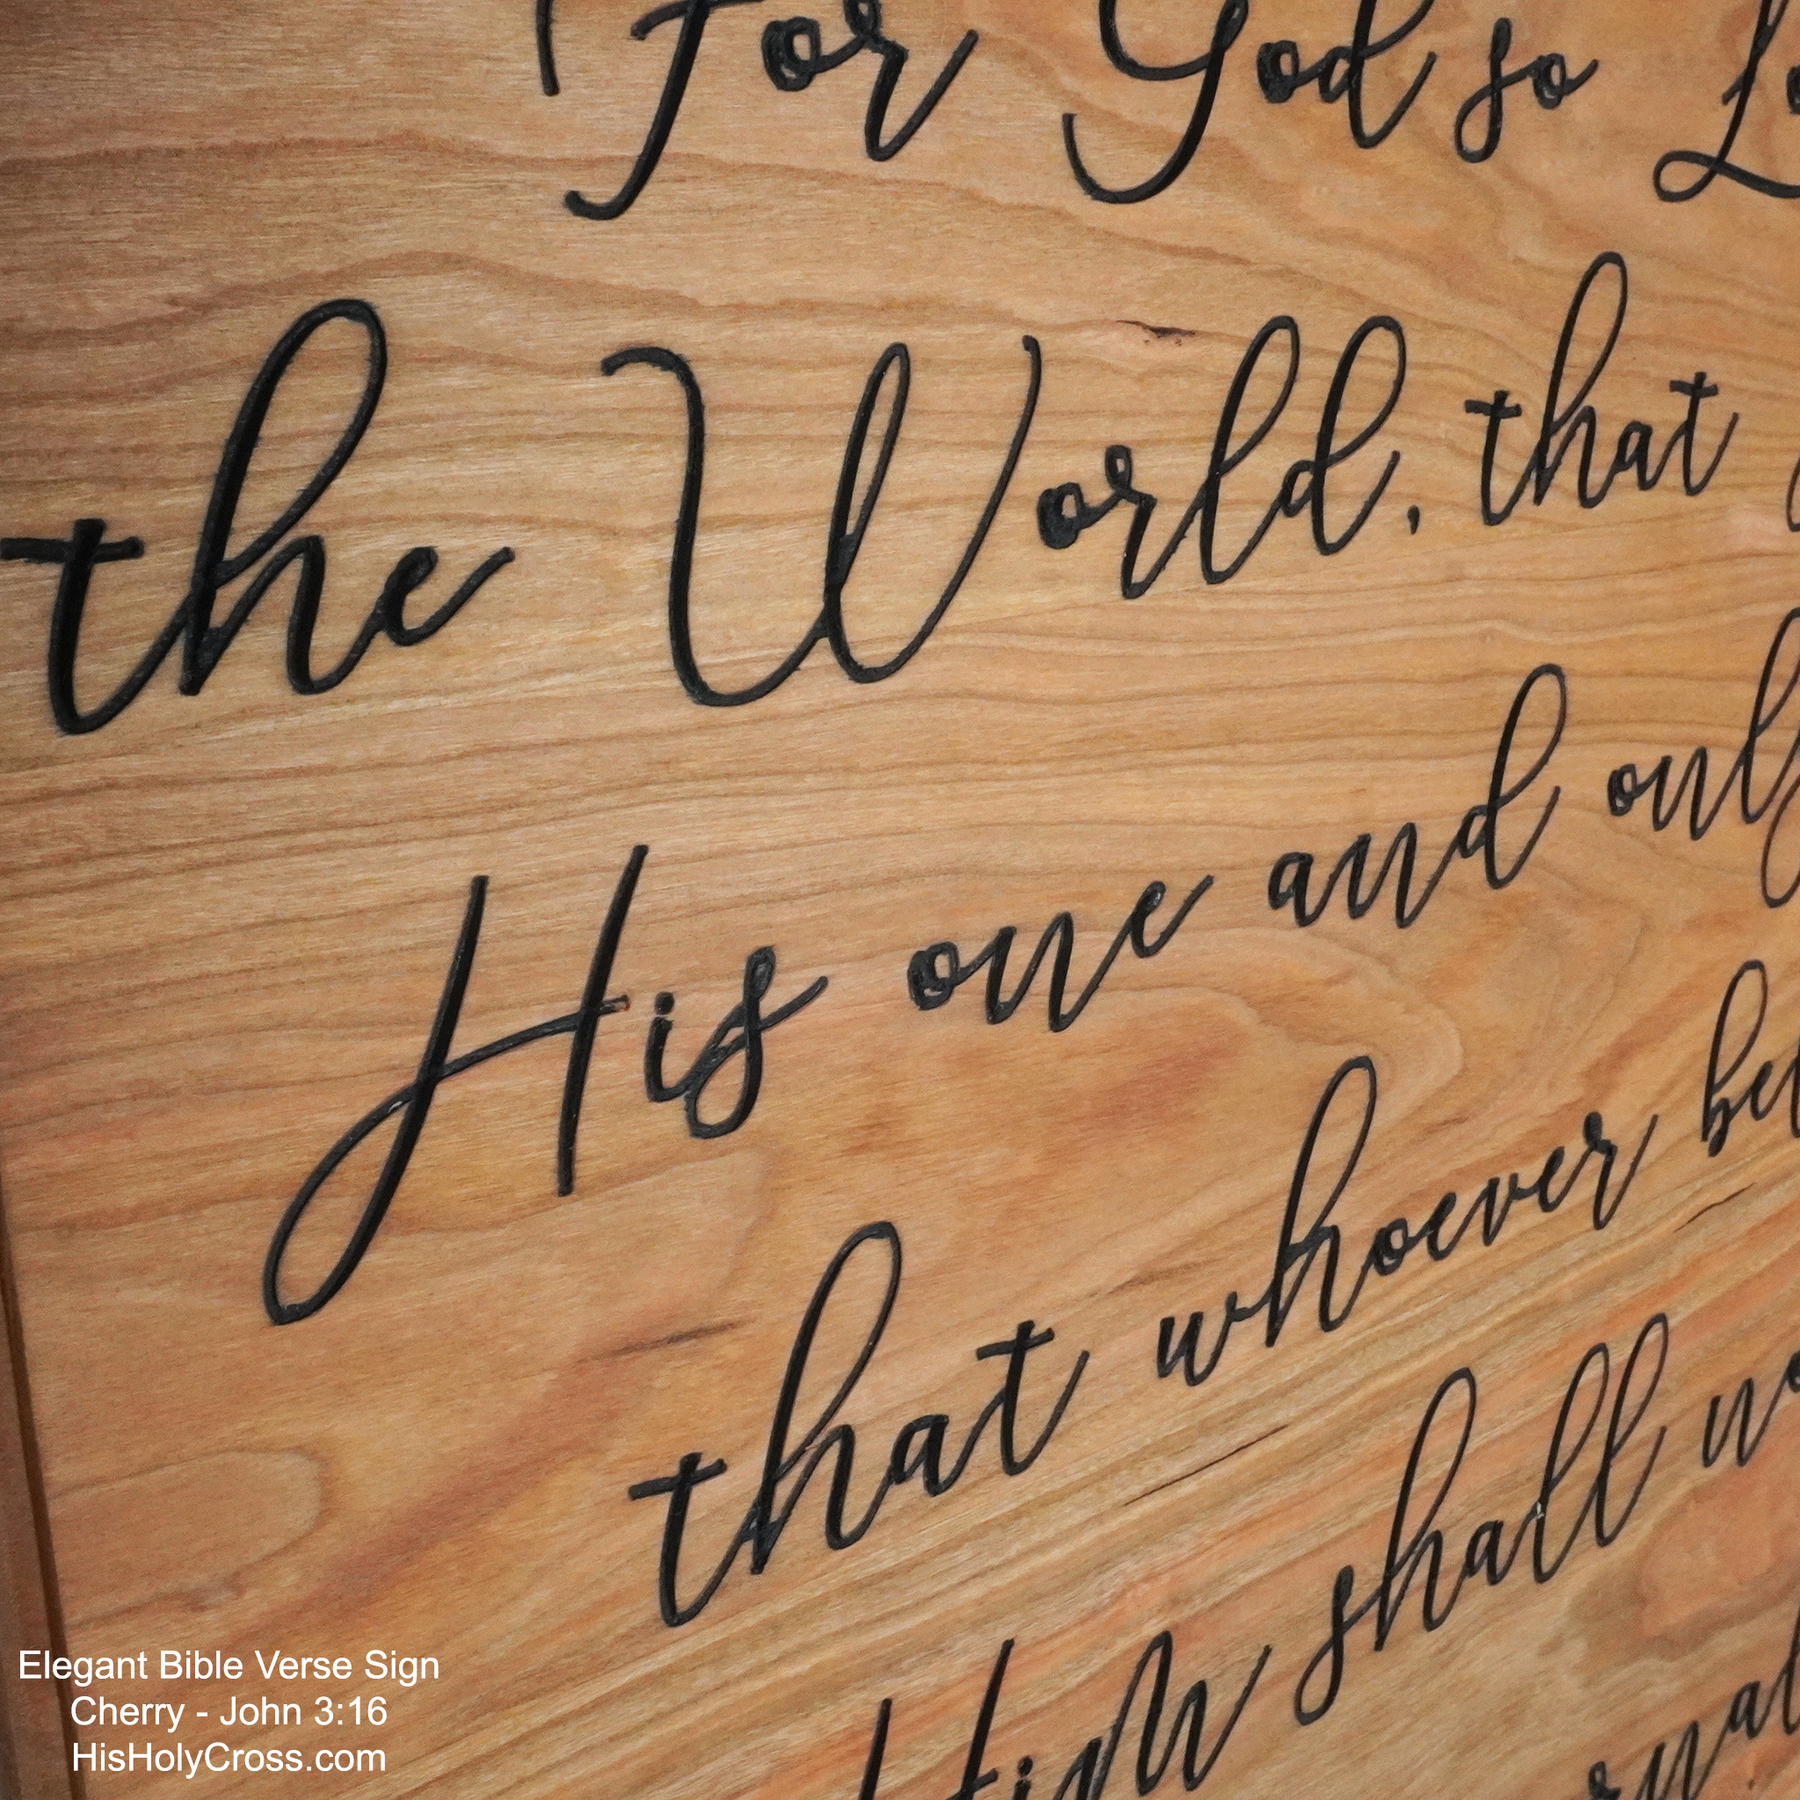 For God so
the World, that
His one and only
that whoever
Him shall
Elegant Bible Verse Sign
Cherry - John 3:16
HisHolyCross.com